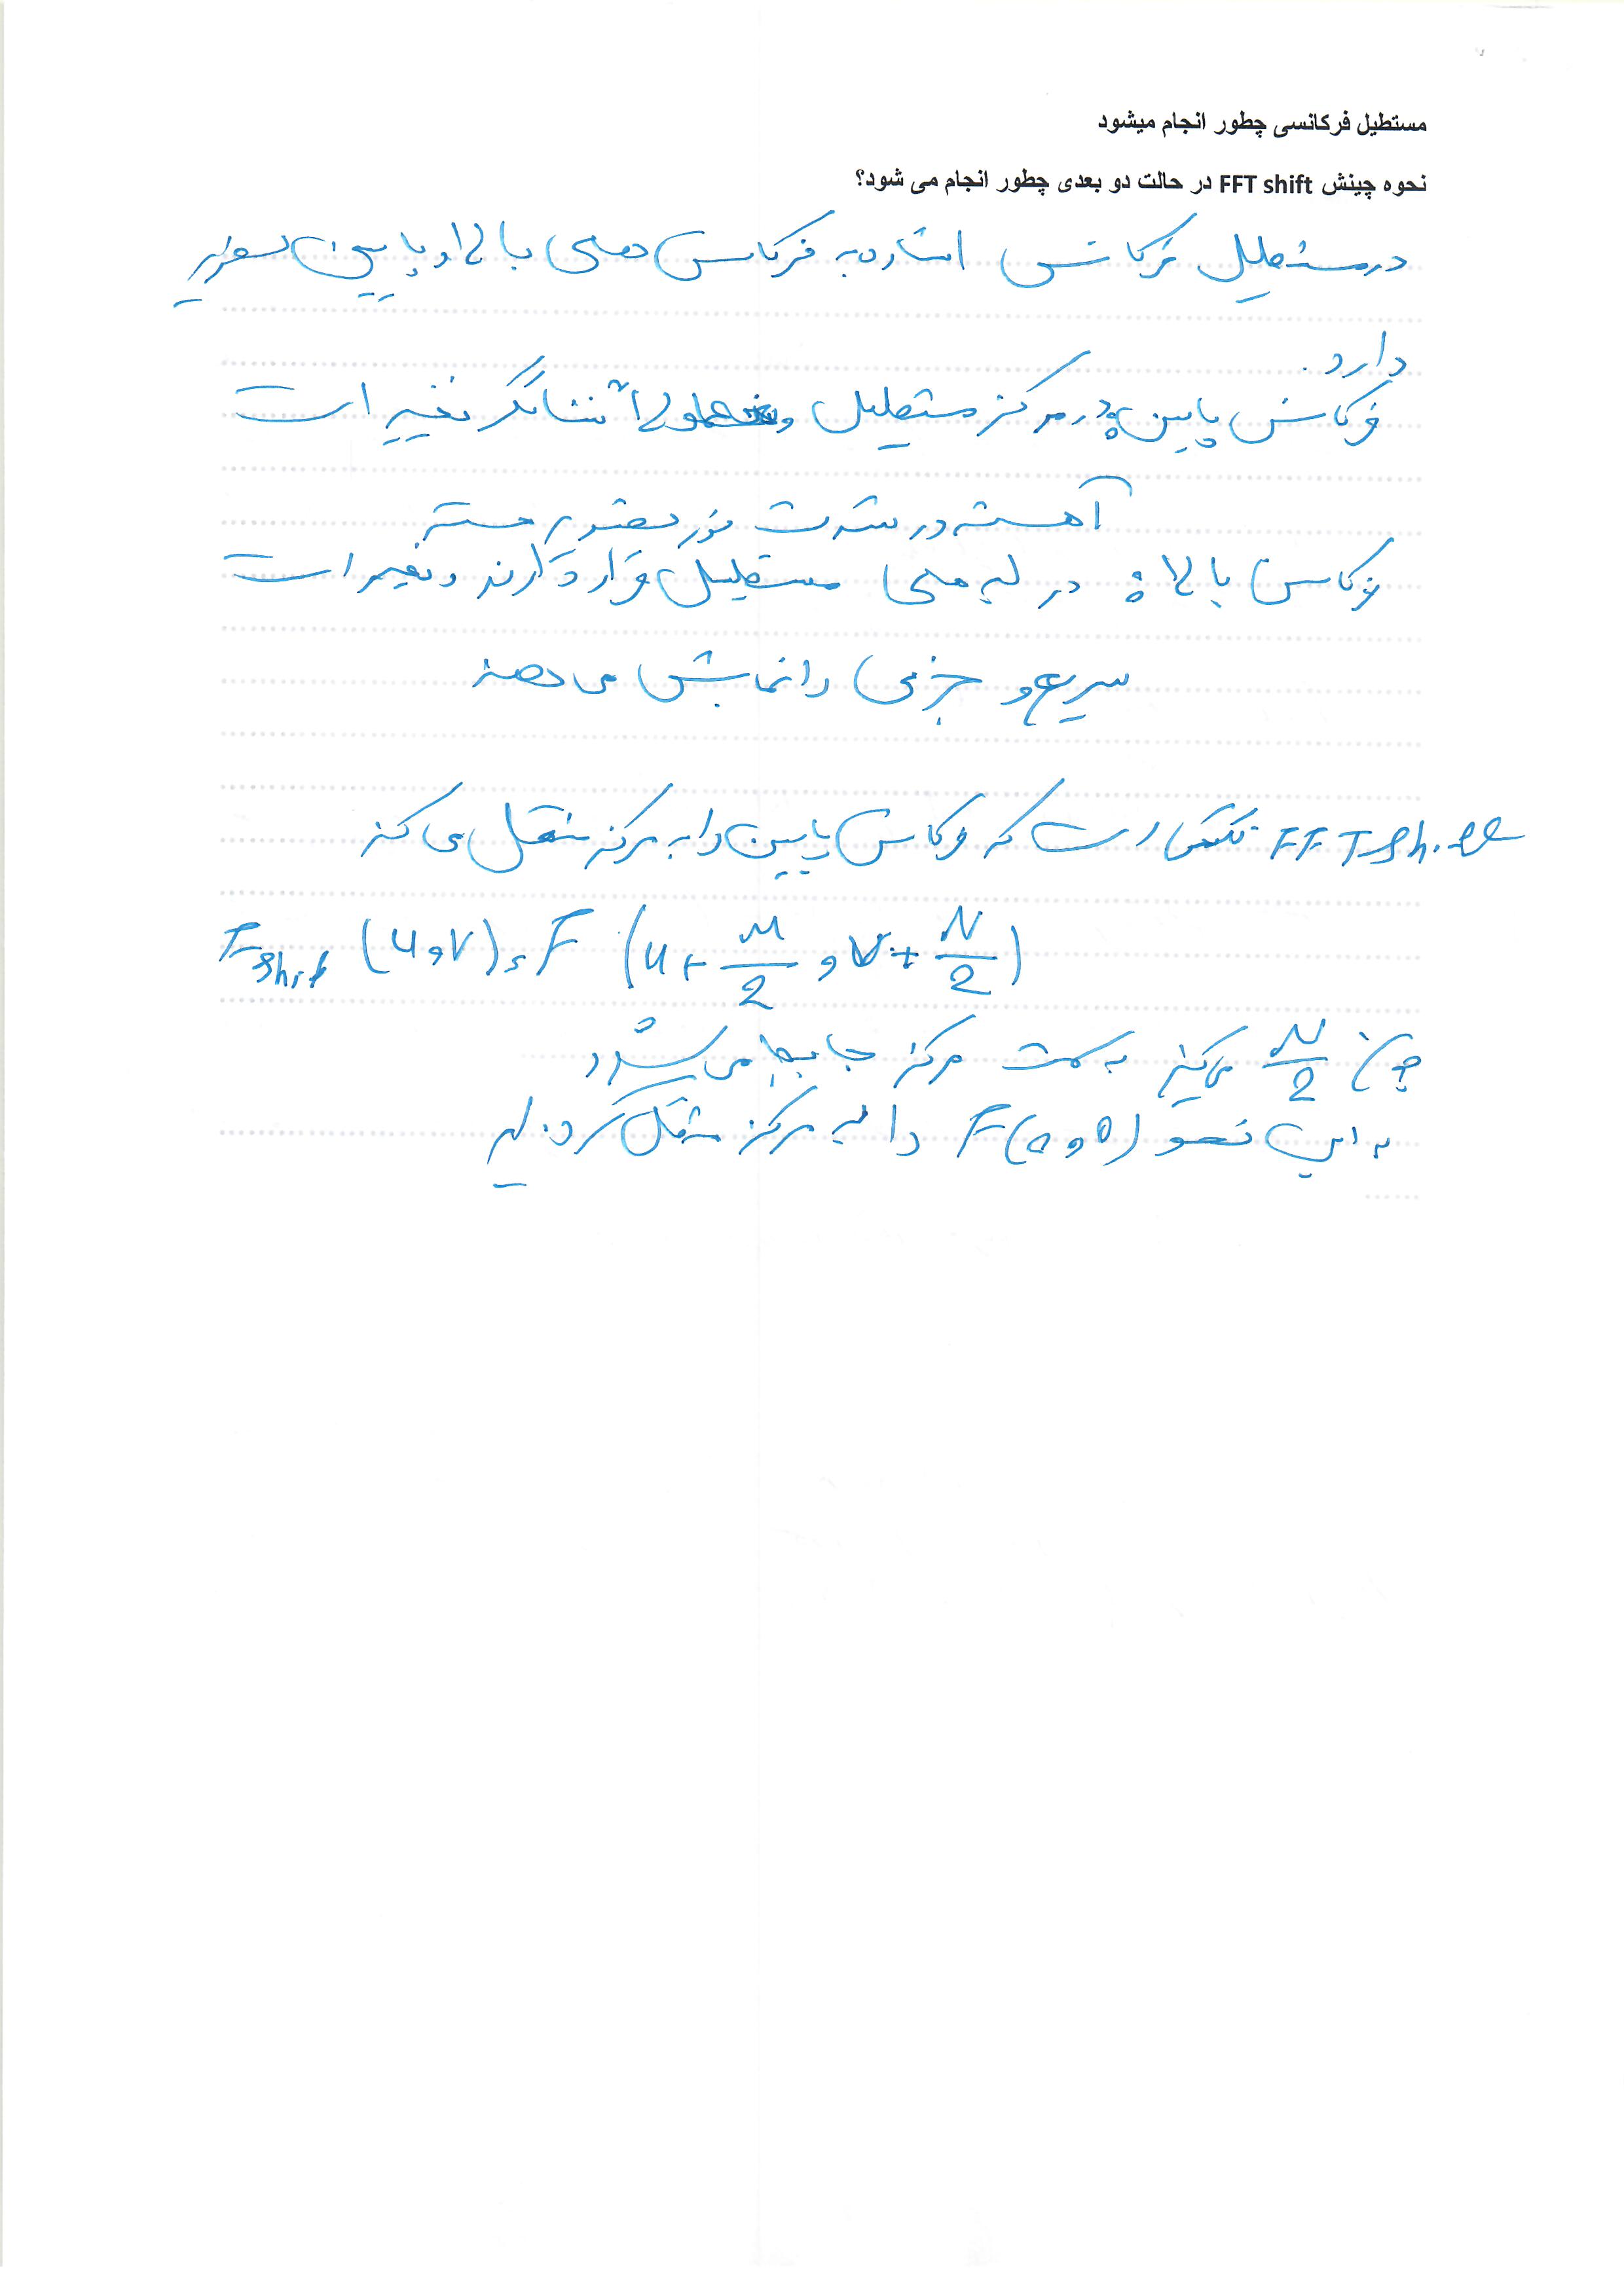 مستطیل فرکانسی چطور انجام میشود
نحوه چینش FFT shift در حالت دو بعدی چطور انجام می شود؟
در مستطیل فرکانس اشاره به فرکانس های بالا و پایین تصویر
دارد.
فرکانس پایین: در مرکز مستطیل و معمولا نشانگر تغییرات
آهسته در شدت نور تصویر هستند
فرکانس بالا: در لبه های مستطیل قرار دارند و تغییرات
سریع و جزئی را نمایش می دهند
FFT shift تکنیکی است که فرکانس پایین را به مرکز منتقل می کند
F shift (u,v) = F (u + M/2 , v + N/2)
M/2 به سمت مرکز جابجا می شود
به این نحو F(0,0) را به مرکز منتقل کرده ایم